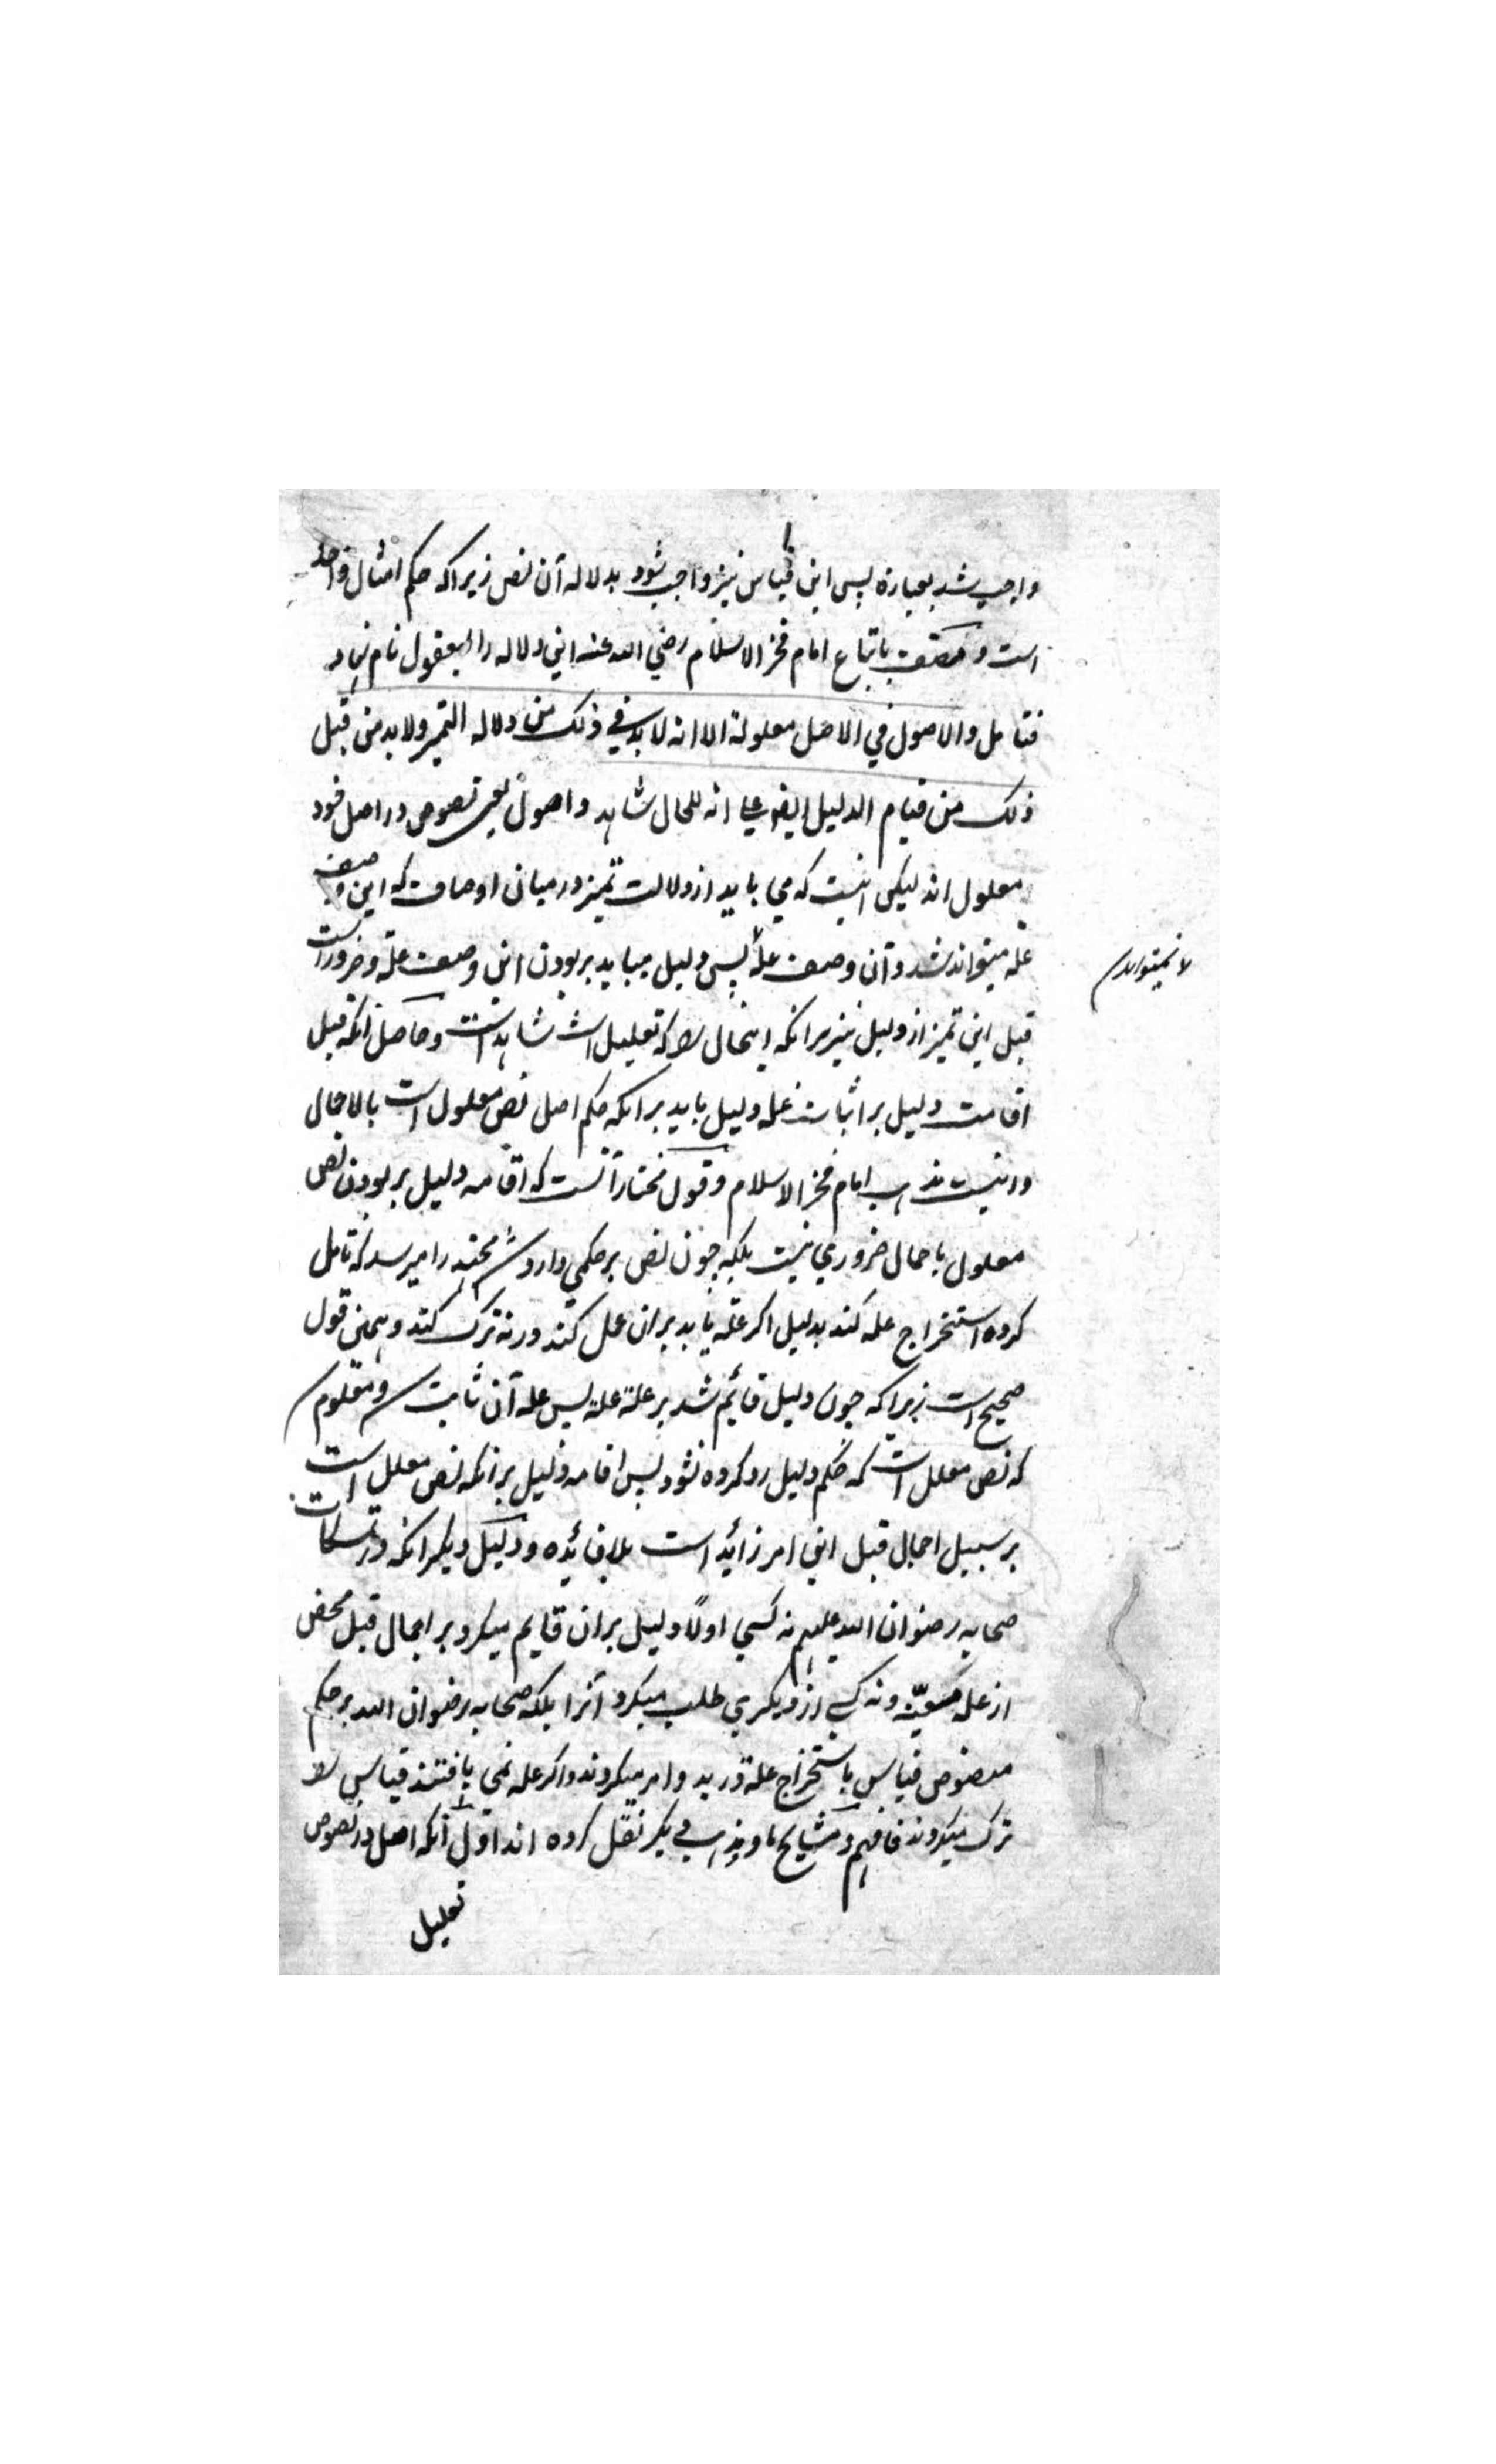 واجب شد بعبارة پس این قیاس نیز واجب شود بدلالة آن نص زیراکه حکم امثال واحد
است و مصنف باتباع امام فخر الاسلام رضي الله عنه این دلاله را بمعقول نام نهاد
فتامل والاصول في الاصل معلولة الا انه لا بد في ذلك من دلالة التميز ولا بد من قبل
ذلك من قيام الدليل انه للحال شاهد و اصول یعنی نصوص در اصل خود
معلول اند لیکن اینست که می باید از دلالت تمیز در میان اوصاف که این وصف
علة میتواند شد و آن وصف علة پس دلیل میباید بر بودن این وصف علة و ضرور است
قبل این تمیز از دلیل نیز برانکه اینحال را که تعلیل است شاهد است و حاصل آنکه قبل
اقامت دلیل بر اثبات علة دلیل باید برانکه حکم اصل نص معلول است بالاجمال
و اینست مذهب امام فخر الاسلام و قول مختار آنست که اقامه دلیل بر بودن نص
معلول باجمال ضروري نیست بلکه چون نص بر حکمي وارد شد مجتهد را میرسد که تامل
کرده استخراج علة کند بدلیل اگر علة یابد بران عمل کند ورنه ترک کند و همین قول
صحیح است زیراکه چون دلیل قائم شد بر علة علة پس علة آن ثابت شد و معلوم شد
که نص معلل است که حکم دلیل رد کرده نشود پس اقامه دلیل برانکه نص معلل است
بر سبیل اجمال قبل این امر زائد است بلا فائده و دلیل دیگر آنکه در تمسکات
صحابه رضوان الله علیهم نه کسي اولاً دلیل بران قایم میکرد بر اجمال قبل محض
از علة معینه و نه کسی از دیگري طلب میکرد آنرا بلکه صحابه رضوان الله بر حکم
منصوص قیاس باستخراج علة وامر میکردند و اگر علة نمي یافتند قیاس را
ترک میکردند فافهم و مشایخ ما دیگر نقل کرده اند اول آنکه اصل در نصوص
تعلیل
لا نمیتواند شد